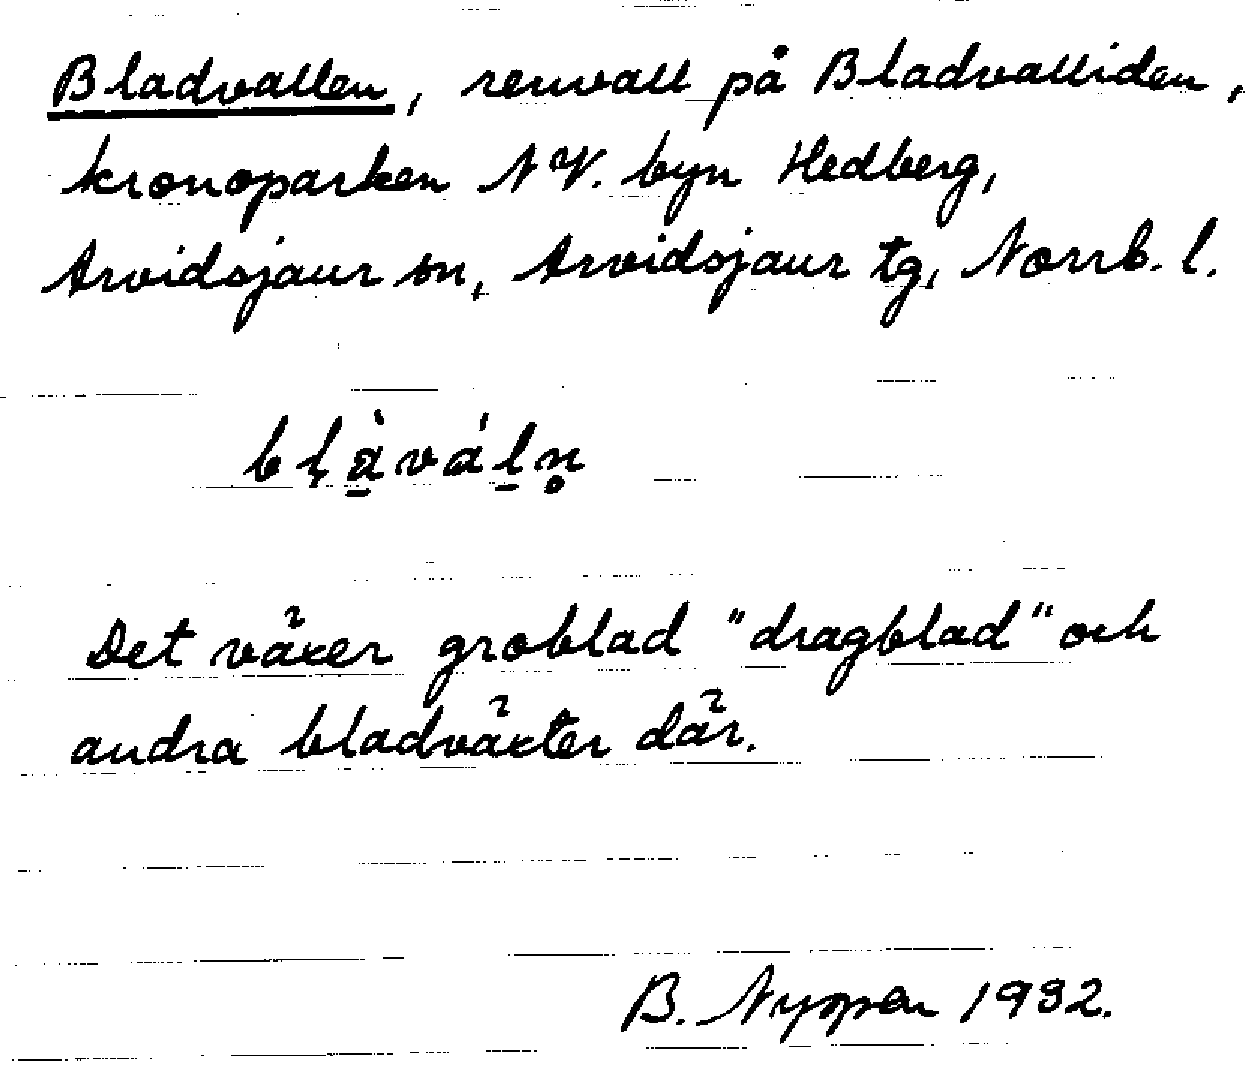 Bladvallen, renvall på Bladvalliden,
kronoparken NV. byn Hedberg,
Arvidsjaur sn, Arvidsjaur tg, Norrb. l.
blàváln̥
Det växer groblad "dragblad" och
andra bladväxter där.
B. Nyppen 1932.